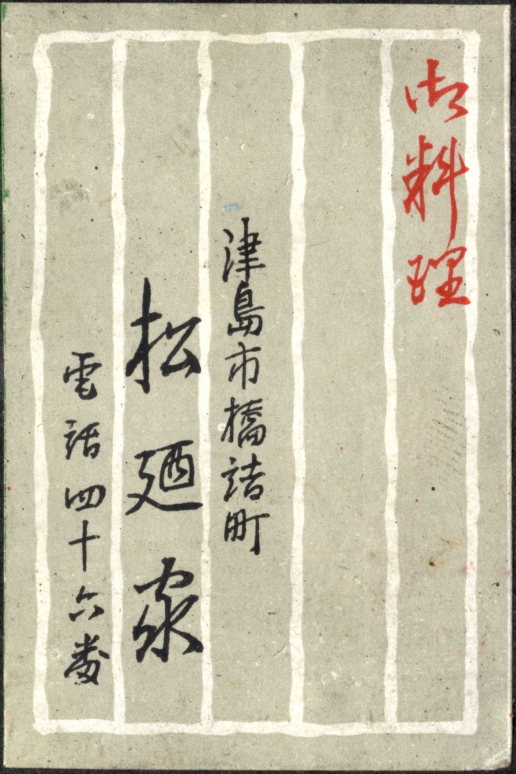 御料理
津島市橋詰町
松廼家
電話四十六番